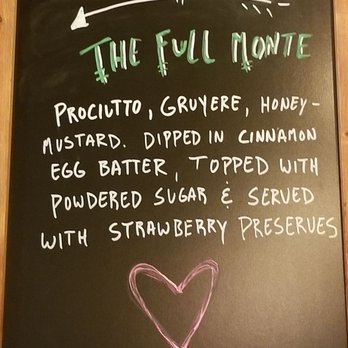 THE FULL MONTE
PROCIUTTO, GRUYERE, HONEY-
MUSTARD. DIPPED IN CINNAMON
EGG BATTER, TOPPED WITH
POWDERED SUGAR & SERVED
WITH STRAWBERRY PRESERVES